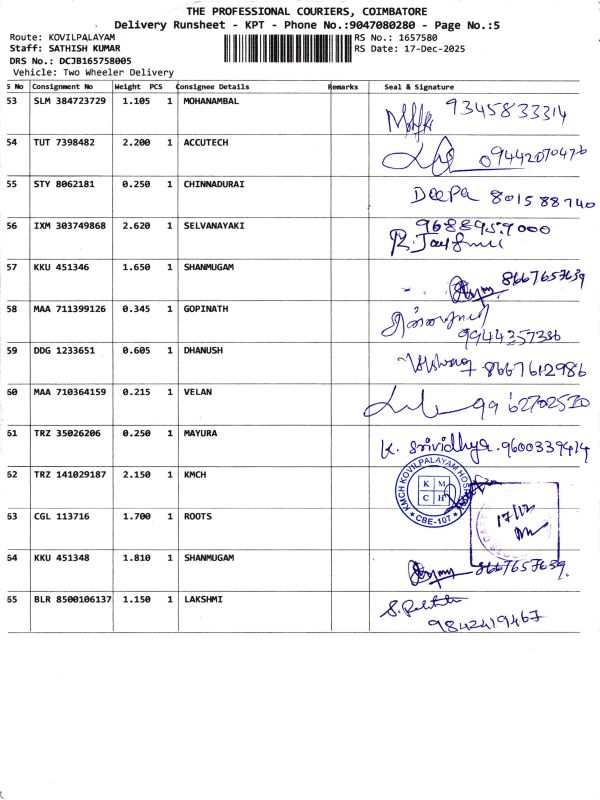 THE PROFESSIONAL COURIERS, COIMBATORE
Delivery Runsheet - KPT - Phone No.:9047080280 - Page No.:5
Route: KOVILPALAYAM RS No.: 1657580
Staff: SATHISH KUMAR RS Date: 17-Dec-2025
DRS No.: DCJB165758005
Vehicle: Two Wheeler Delivery
S No Consignment No Weight PCS Consignee Details Remarks Seal & Signature
53 SLM 384723729 1.105 1 MOHANAMBAL 9345833314
54 TUT 7398482 2.200 1 ACCUTECH 09442070476
55 STY 8062181 0.250 1 CHINNADURAI Deepa 801588740
56 IXM 303749868 2.620 1 SELVANAYAKI 9688959000
57 KKU 451346 1.650 1 SHANMUGAM 8667657639
58 MAA 711399126 0.345 1 GOPINATH
9944357336
59 DDG 1233651 0.605 1 DHANUSH 8667612986
60 MAA 710364159 0.215 1 VELAN 9962702520
61 TRZ 35026206 0.250 1 MAYURA K. Srividhya. 9600339414
62 TRZ 141029187 2.150 1 KMCH
KMCH KOVILPALAYAM HOSPITAL
K M
C H
CBE-107
63 CGL 113716 1.700 1 ROOTS 17/12
64 KKU 451348 1.810 1 SHANMUGAM 8667657639.
65 BLR 8500106137 1.150 1 LAKSHMI
9842419467